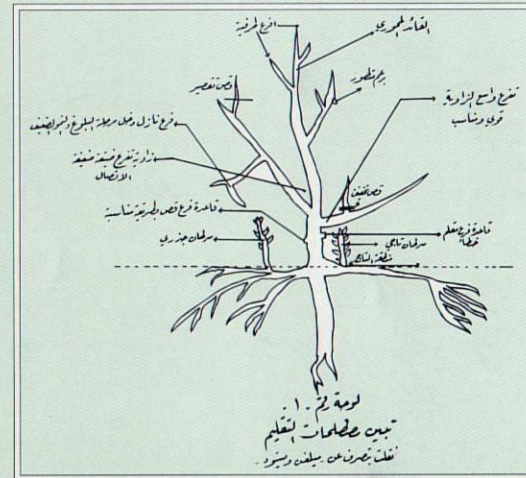 القائد المحوري
افرع طرفية
برعم متطور
قص تقصير
تفرع واسع الزاوية
قوي ومناسب
فرع نازل دخل مرحلة البلوغ والنمو الضعيف
زاوية تفرع ضيقة ضعيفة
الاتصال
قص تخفيف
قاعدة فرع قص بطريقة مناسبة
قاعدة فرع مقلم
خطأ
سرطان جذري
سرطان تاجي
منطقة التاج
لوحة رقم ١٠
تبين مصطلحات التقليم
نقلت بتصرف عن